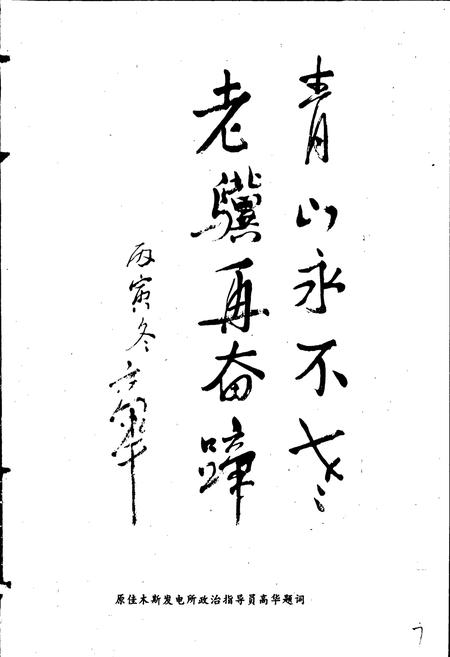 青山永不老
老驥再奋蹄
丙寅冬 高華
原佳木斯发电所政治指导员高华题词
7